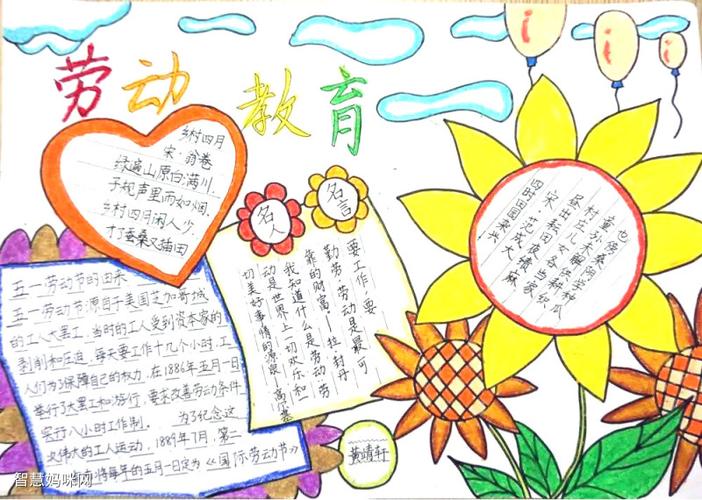 劳动教育
乡村四月
宋·翁卷
绿遍山原白满川,
子规声里雨如烟.
乡村四月闲人少,
蚕桑又插田
名人
名言
要工作,要
勤劳:劳动是最可
靠的财富—拉·封丹
我知道什么是劳动:劳
动是世界上一切欢乐和
切美好事情的源泉—高尔基
四时田园杂兴
宋 范成大
昼出耘田夜绩麻
村庄儿女各当家
童孙未解供耕织
也傍桑阴学种瓜
五一劳动节的由来
五一劳动节源自于美国芝加哥城
的工人大罢工,当时的工人受到资本家的
剥削和压迫,每天要工作十几个小时,工
人们为了保障自己的权力,在1886年五月一日
举行了大罢工和游行,要求改善劳动条件
实行八小时工作制. 为了纪念这
次伟大的工人运动,1889年7月,第二
将每年的五月一日定为《国际劳动节》
黄靖轩
智慧妈咪网